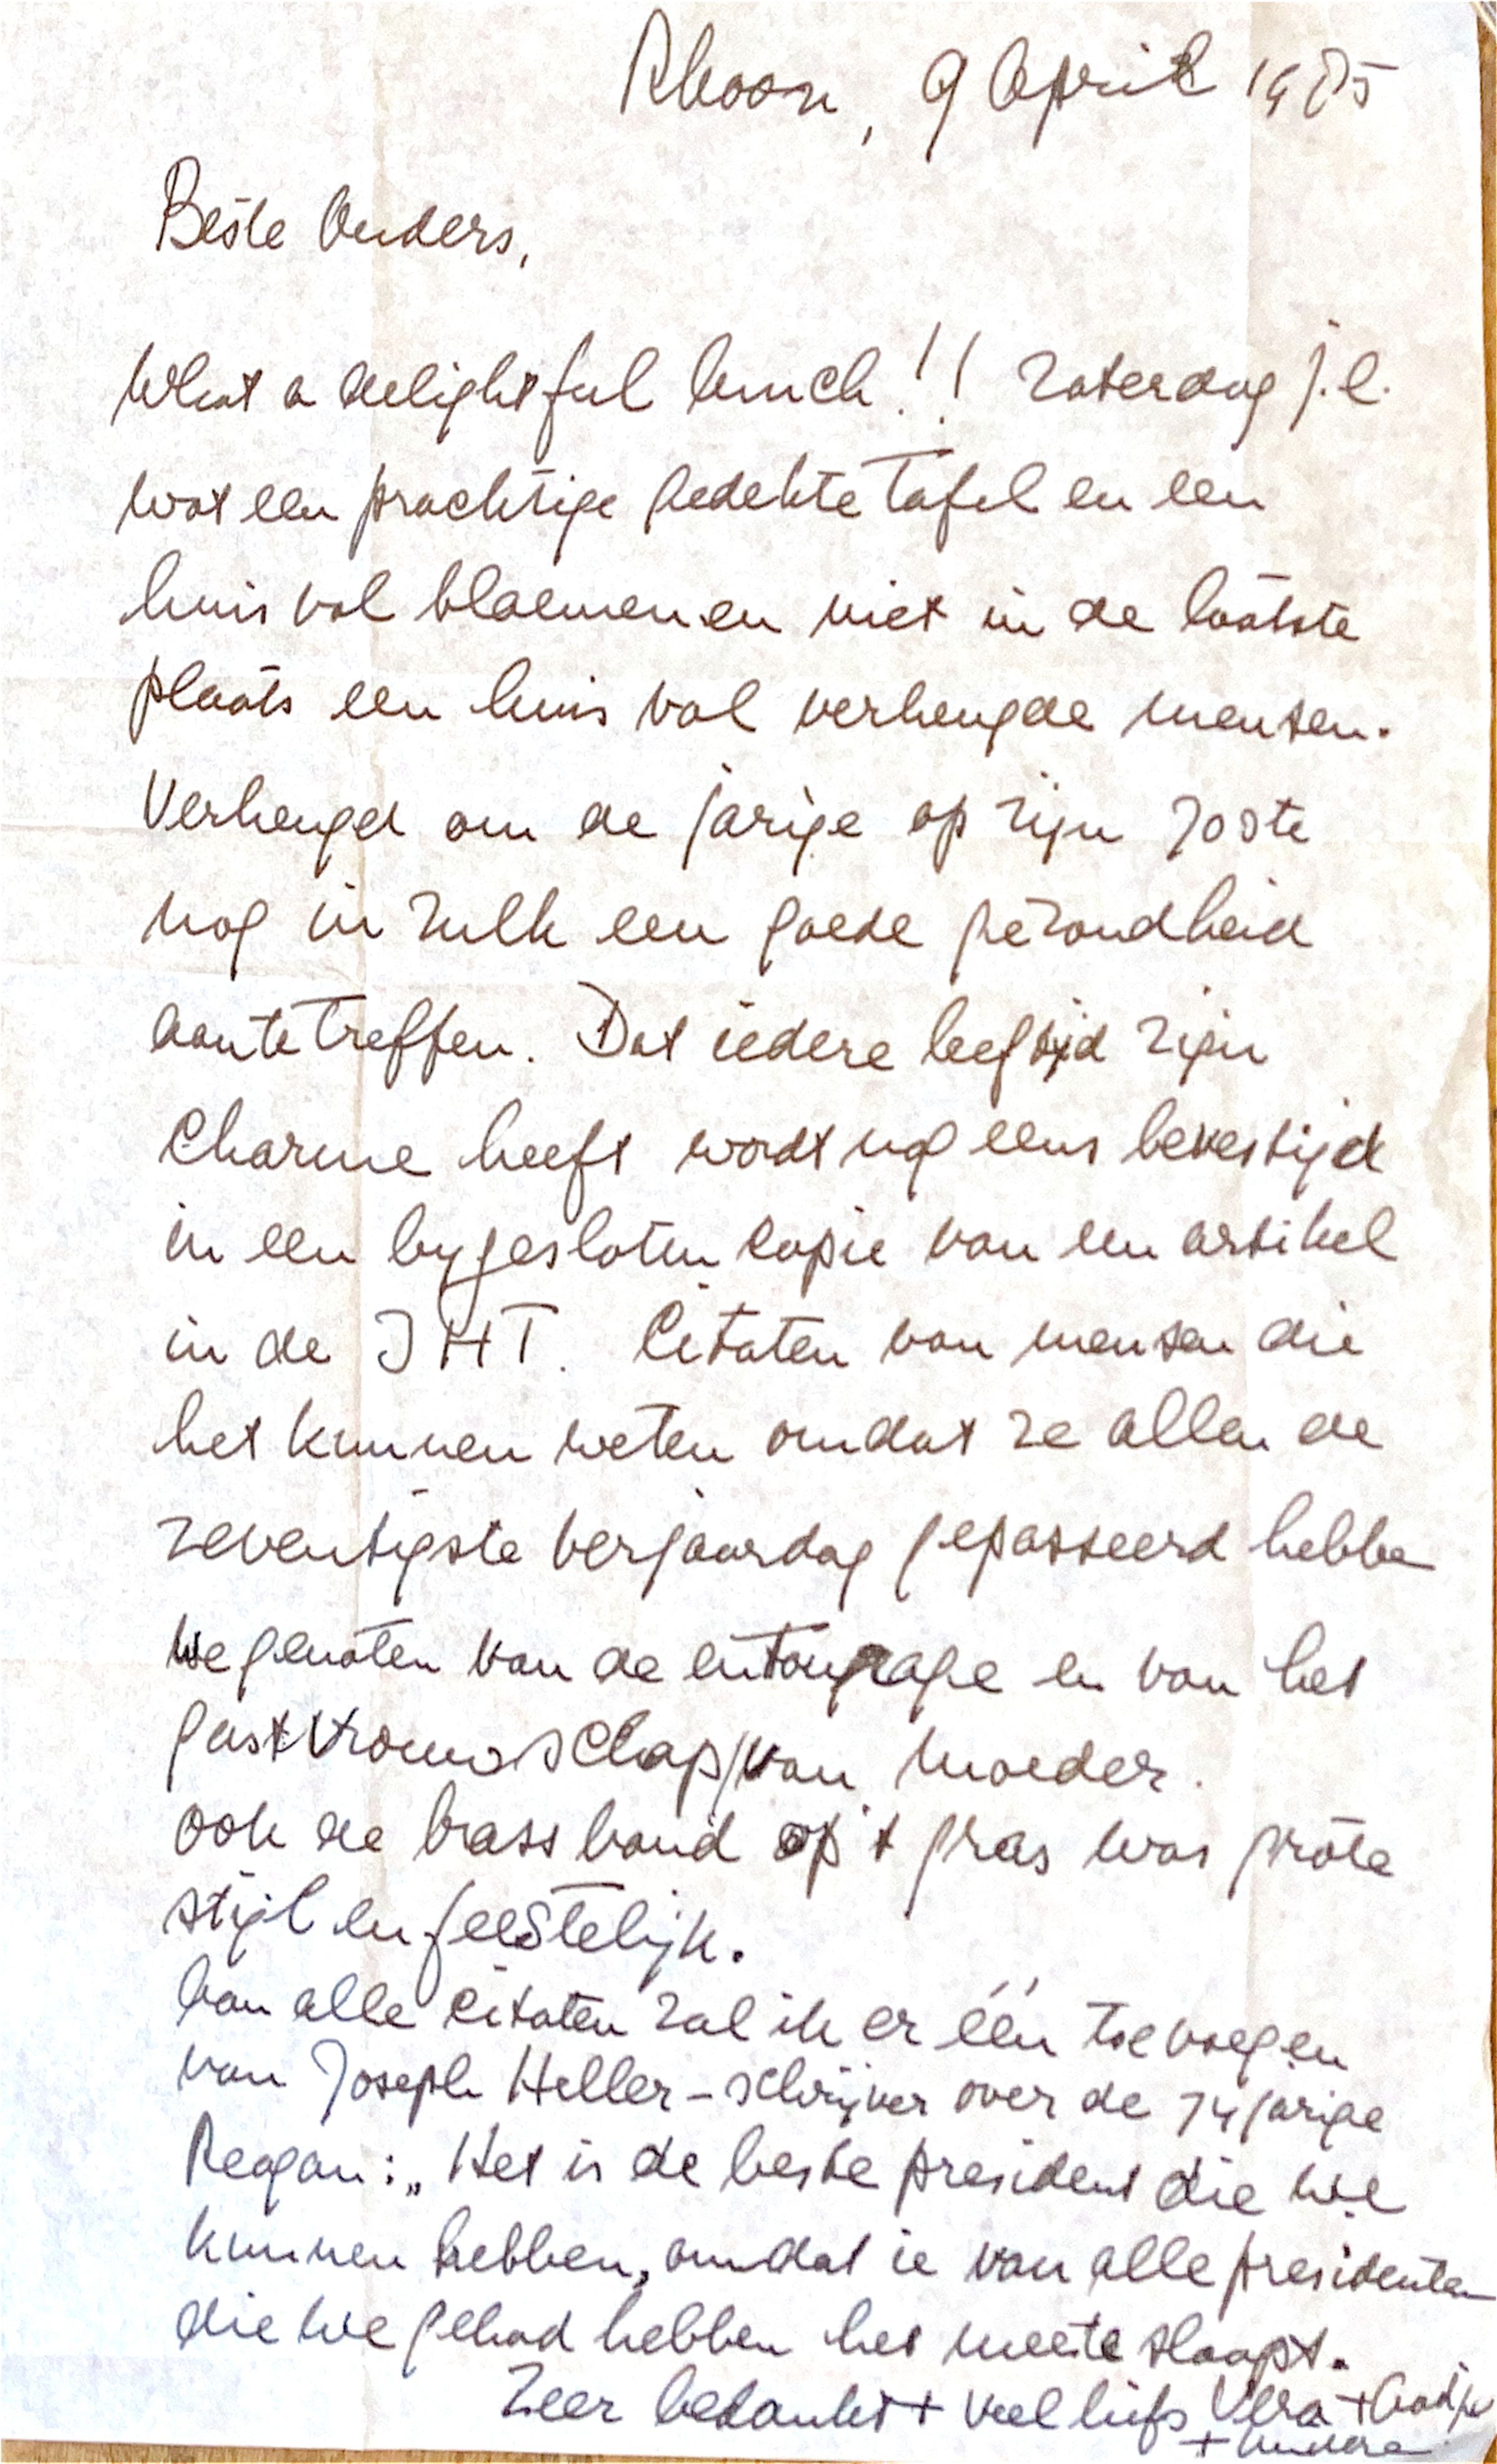 Rhoon, 9 April 1985
Beste Ouders,
What a delightful lunch!! Zaterdag j.l.
wat een prachtige gedekte tafel en een
huis vol bloemen en niet in de laatste
plaats een huis vol verheugde mensen.
Verheugd om de jarige op zijn 70ste
nog in zulk een goede gezondheid
aan te treffen. Dat iedere leeftijd zijn
Charme heeft wordt nog eens bevestigd
in een bygesloten copie van een artikel
in de IHT. Citaten van mensen die
het kunnen weten omdat ze allen de
zeventigste verjaardag gepasseerd hebben
We genoten van de entourage en van het
gastvrouwschap van Moeder.
Ook de brassband op 't gras was grote
stijl en feestelijk.
Aan alle citaten zal ik er één toevoegen
van Joseph Heller - schrijver over de 74 jarige
Reagan: „Het is de beste president die we
kunnen hebben, omdat ie van alle presidenten
die we gehad hebben het meeste slaapt.
Zeer bedankt + veel liefs Vera +
+